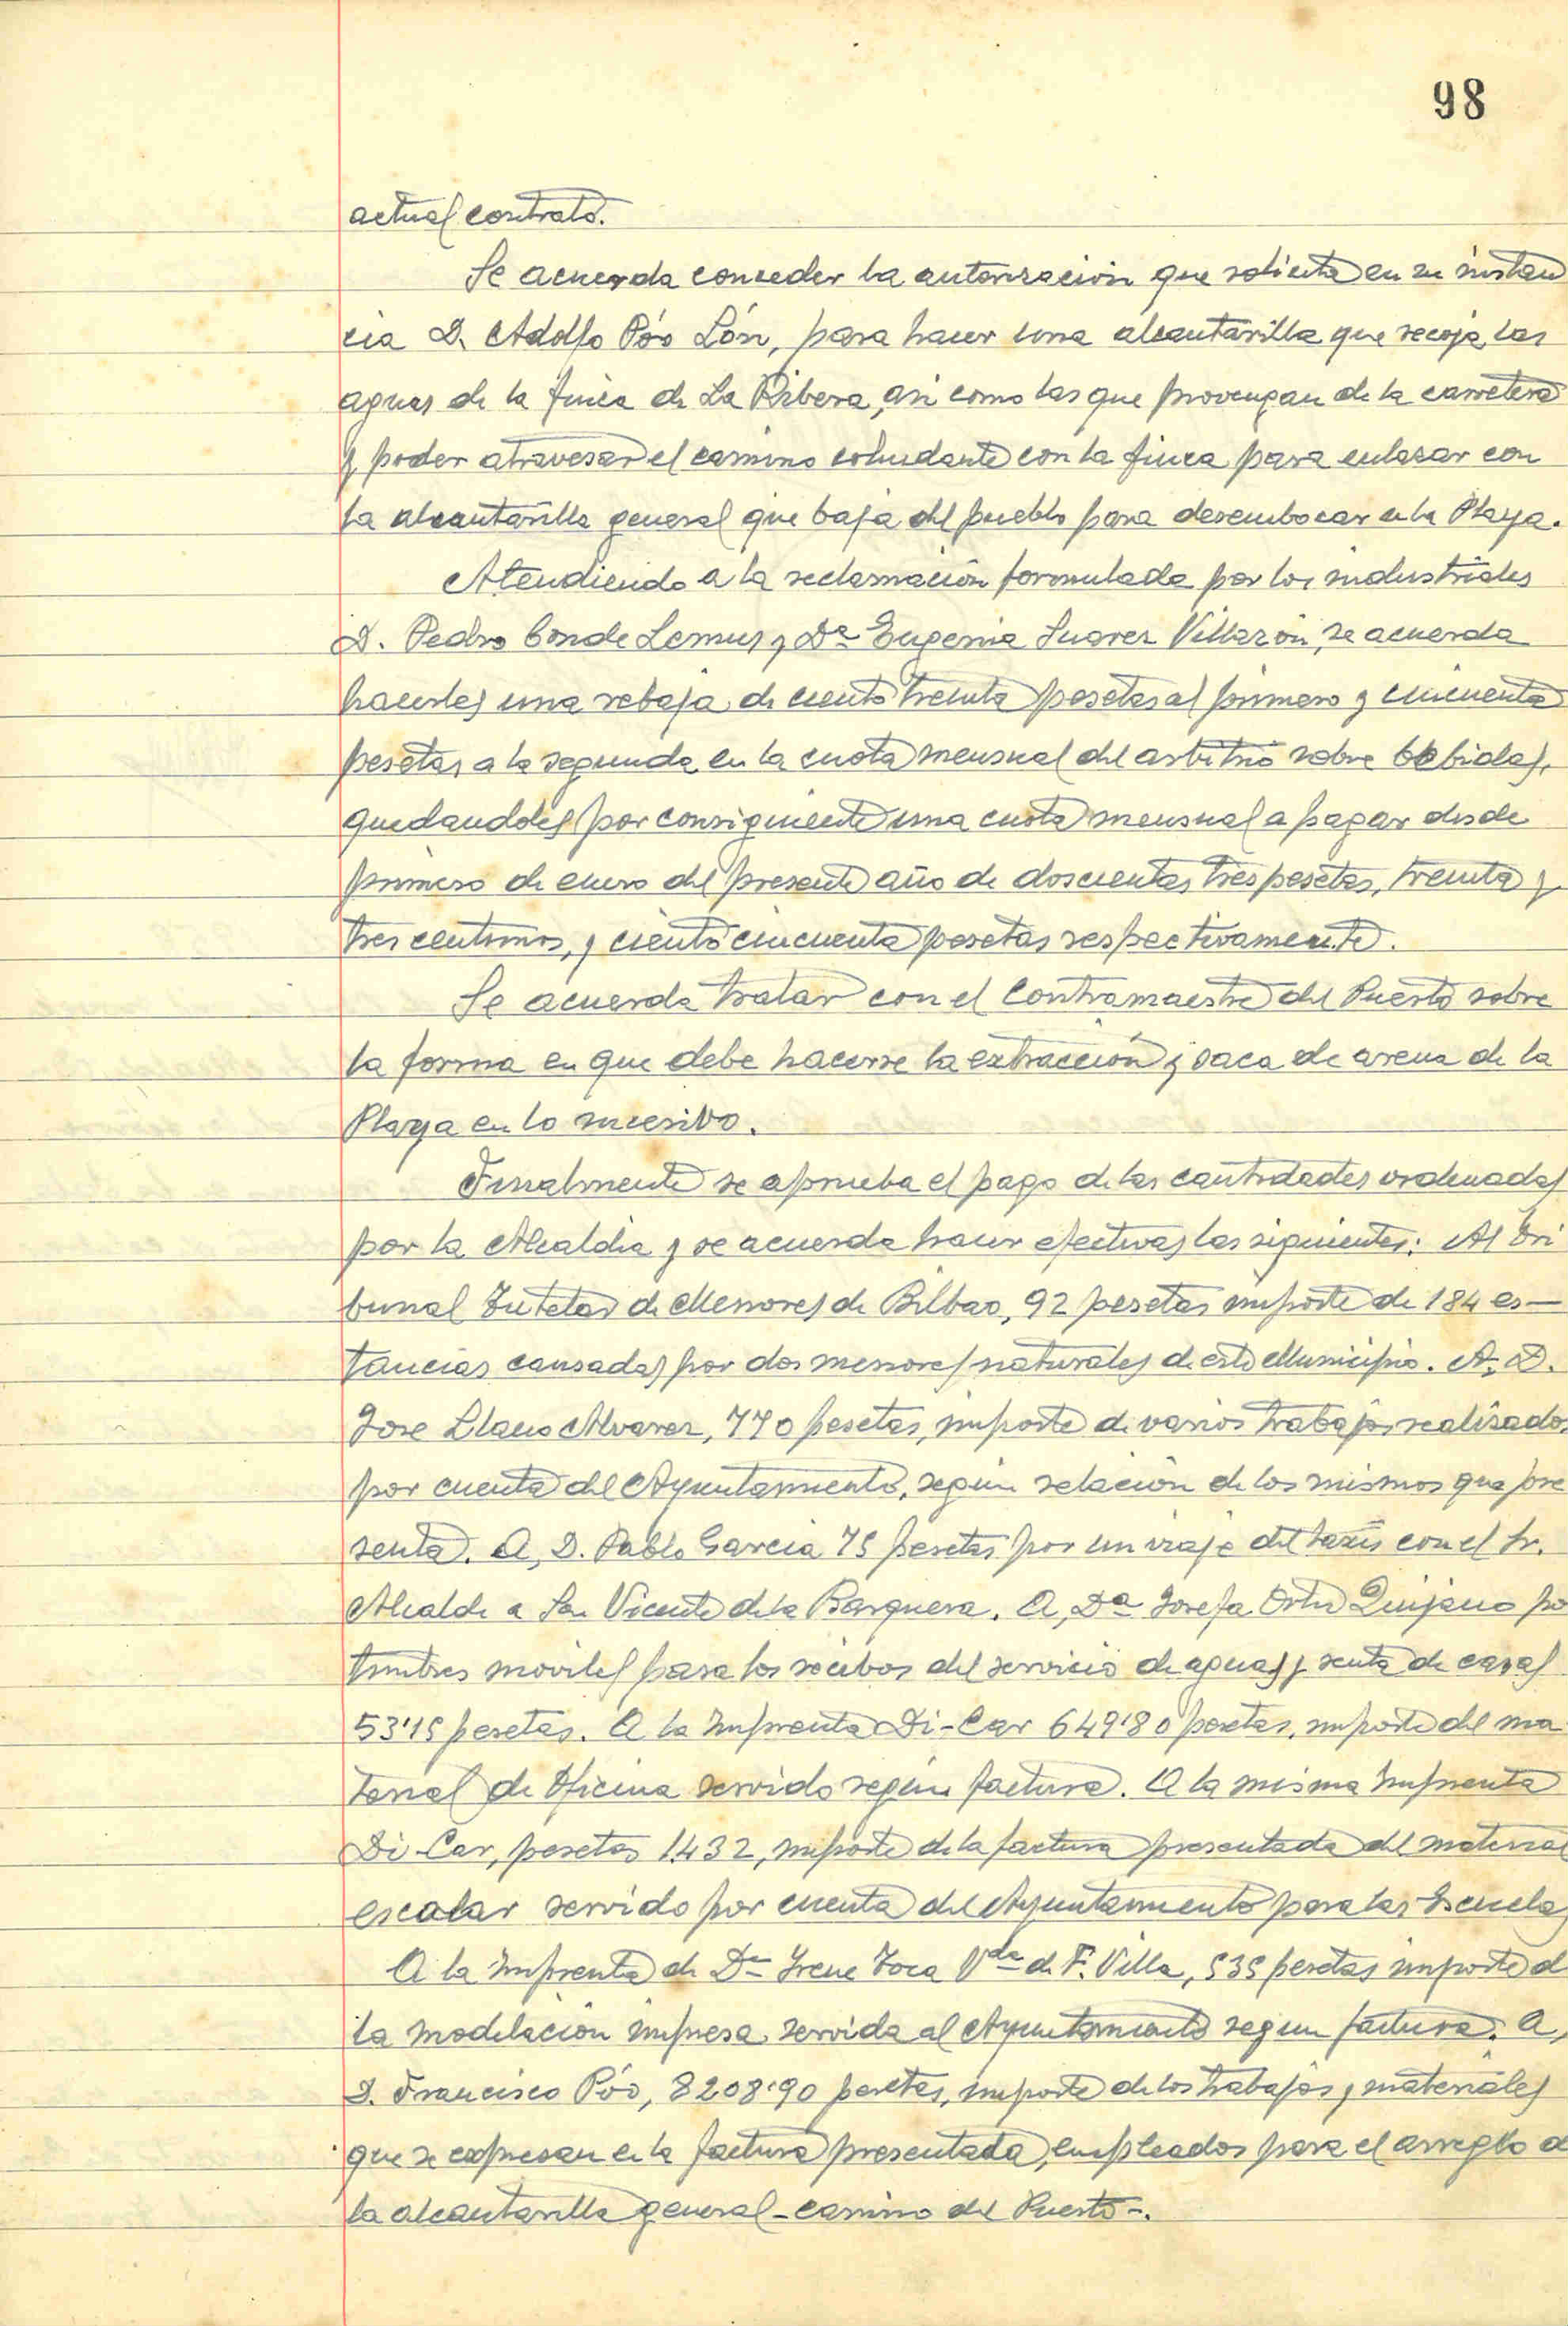 98
actual contrato.
Se acuerda conceder la autorización que solicita en su instan
cia D. Adolfo Póo Lón, para hacer una alcantarilla que recoja las
aguas de la finca de La Ribera, asi como las que provengan de la carretera
y poder atravesar el camino colindante con la finca para enlazar con
la alcantarilla general que baja del pueblo para desembocar en la Playa.
Atendiendo a la reclamación formulada por los industriales
D. Pedro Conde Lemus y Dª Eugenia Suarez Villazón, se acuerda
hacerles una rebaja de ciento treinta pesetas al primero y cincuenta
pesetas a la segunda en la cuota mensual del arbitrio sobre bebidas,
quedandoles por consiguiente una cuota mensual a pagar desde
primero de enero del presente año de doscientas tres pesetas, treinta y
tres centimos, y ciento cincuenta pesetas respectivamente.
Se acuerda tratar con el Contramaestre del Puerto sobre
la forma en que debe hacerse la extracción y saca de arena de la
Playa en lo sucesivo.
Finalmente se aprueba el pago de las cantidades ordenadas
por la Alcaldia y se acuerda hacer efectivas las siguientes: Al Tri
bunal Tutelar de Menores de Bilbao, 92 pesetas importe de 184 es-
tancias causadas por dos menores naturales de este Municipio. A, D.
Jose Llano Alvarez, 770 pesetas, importe de varios trabajos realizados
por cuenta del Ayuntamiento, según relación de los mismos que pre
senta. A, D. Pablo Garcia 75 pesetas por un viaje del taxis con el Sr.
Alcalde a San Vicente de la Barquera. A, Dª Josefa Ortiz Quijano po
timbres moviles para los recibos del servicio de aguas y renta de casas
53'15 pesetas. A la Imprenta Di-Car 649'80 pesetas, importe del ma
terial de Oficina servido según factura. A la misma Imprenta
Di-Car, pesetas 1.432, importe de la factura presentada del material
escolar servido por cuenta del Ayuntamiento para las Escuelas
A la Imprenta de Dª Irene Toca Vda de F. Villa, 535 pesetas importe d
la modelación impresa servida al Ayuntamiento segun factura. A,
D. Francisco Póo, 8208'90 pesetas, importe de los trabajos y materiales
que se expresan en la factura presentada, empleados para el arreglo d
la alcantarilla general -camino del Puerto-.